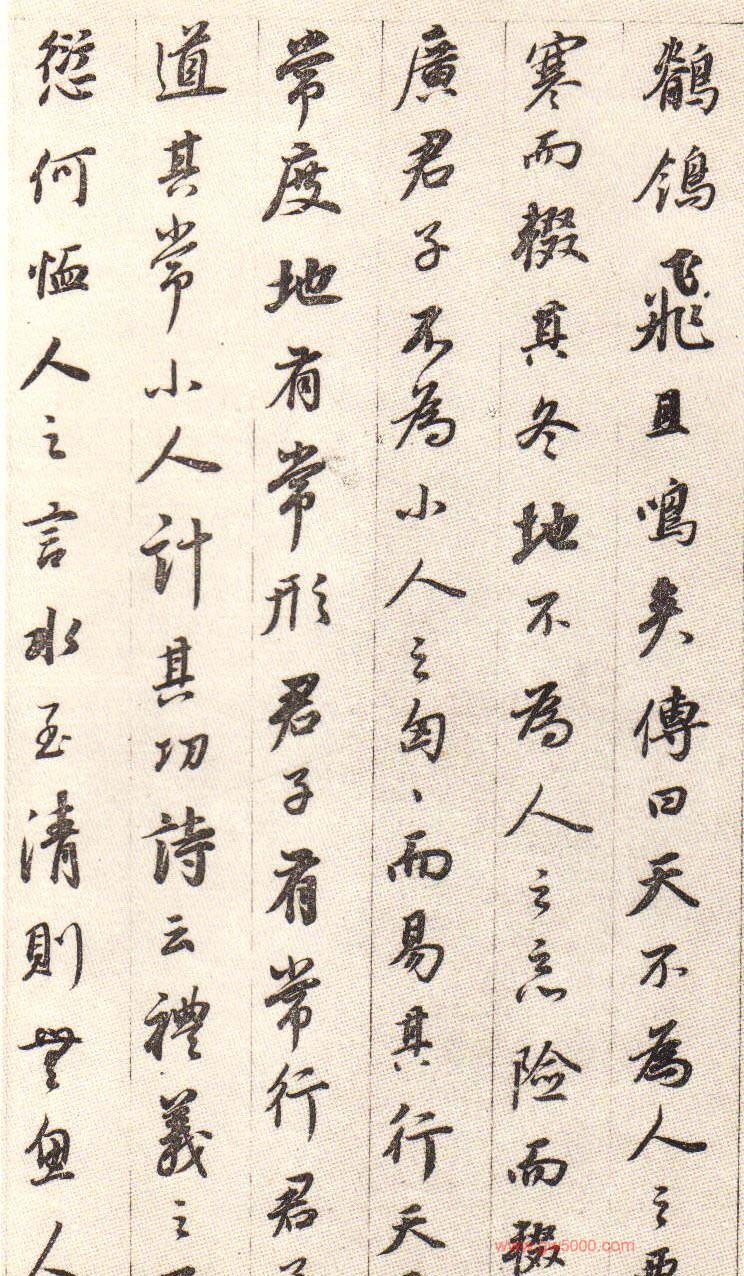 鶺鴒飛且鳴矣傳曰天不為人之惡
寒而輟其冬地不為人之惡險而輟
廣君子不為小人之匈、而易其行天
常度地有常形君子有常行君子
道其常小人計其功詩云禮義之不
愆何恤人之言水至清則無魚人
www.yw5000.com